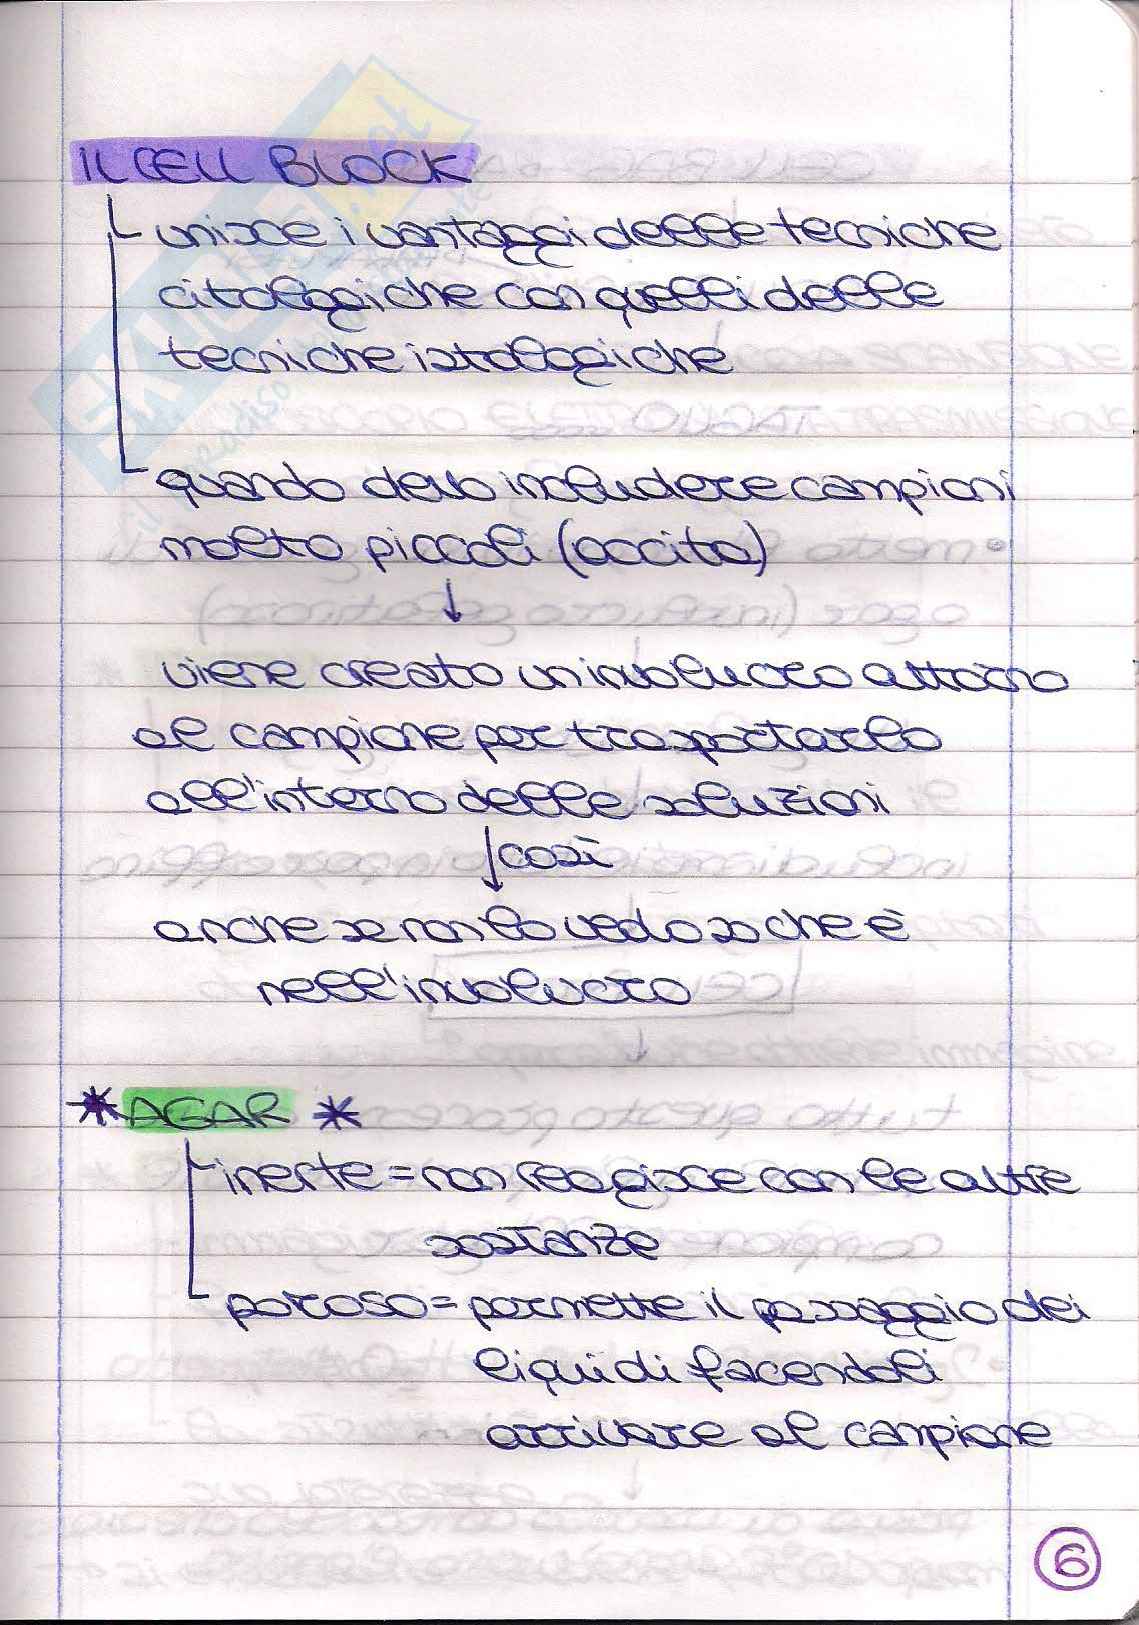 IL CELL BLOCK
unisce i vantaggi delle tecniche
citologiche con quelli delle
tecniche istologiche
quando devo includere campioni
molto piccoli (occito)
↓
viene creato un involucro attorno
al campione per trasportarlo
all'interno delle soluzioni
↓ così
anche se non lo vedo so che è
nell'involucro
* AGAR *
inerte = non reagisce con le altre
sostanze
poroso = permette il passaggio dei
liquidi facendoli
arrivare al campione
6